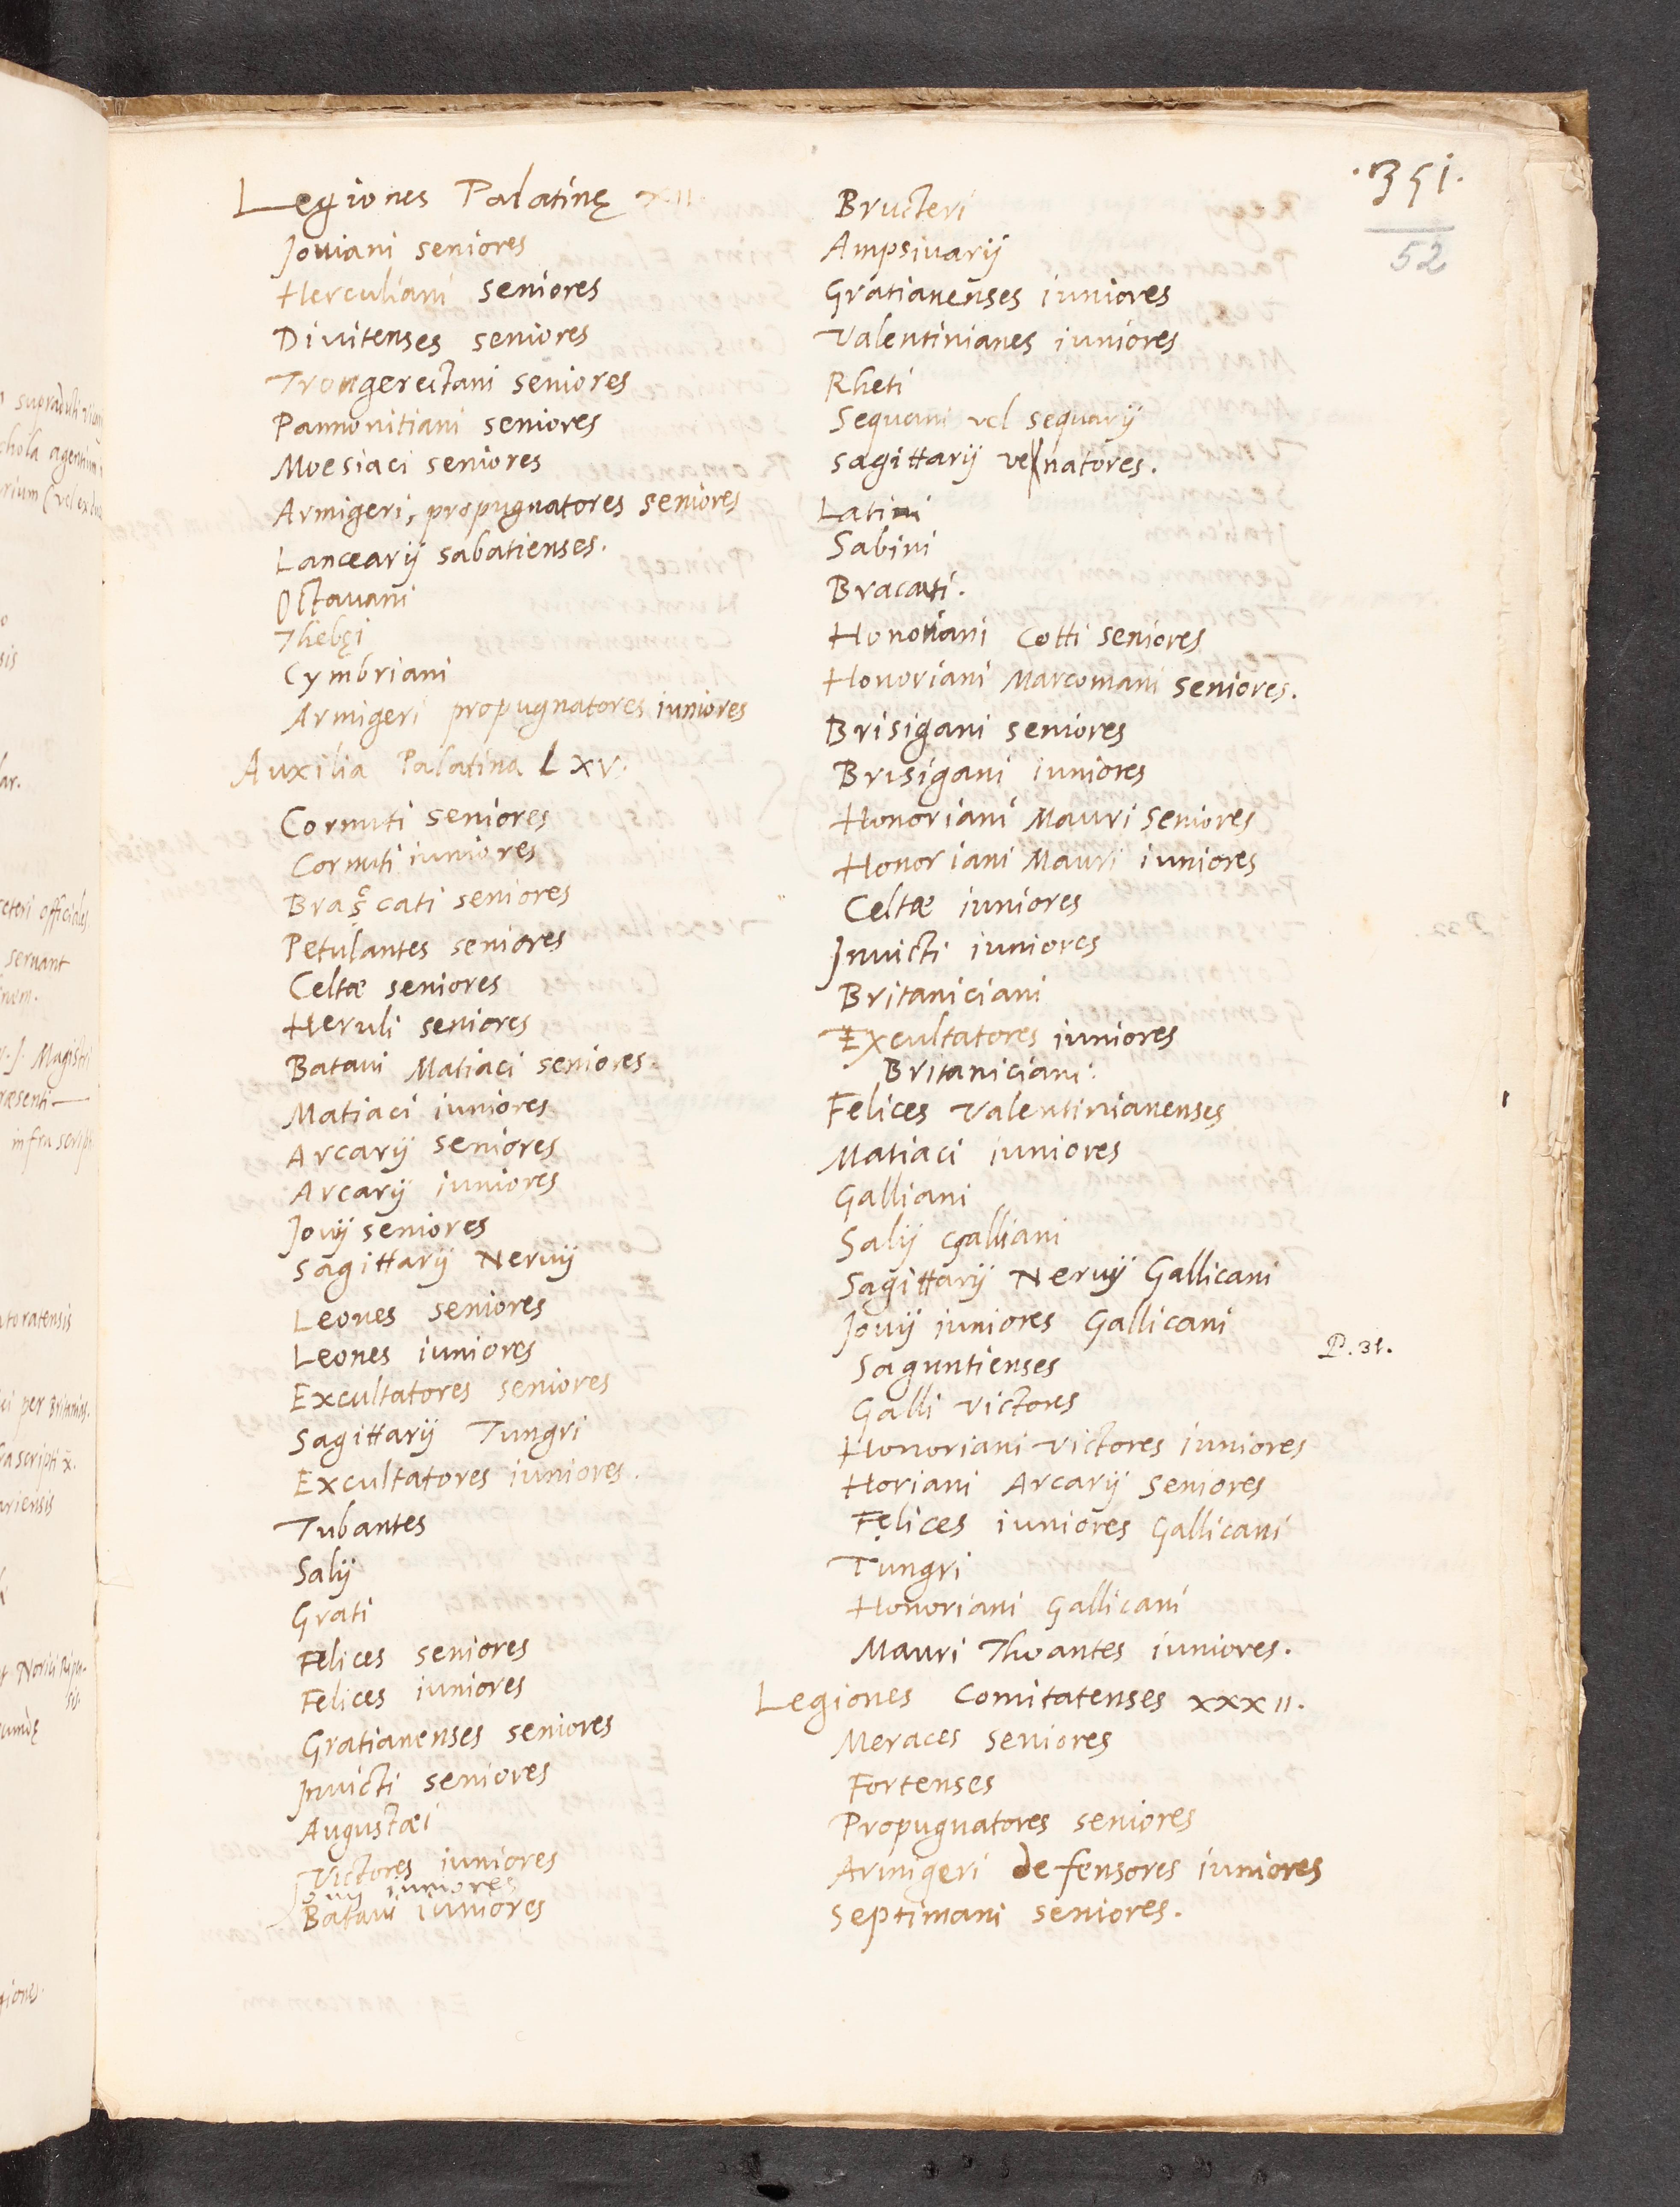 .351.
52
Legiones Palatinę XII
Jouiani seniores
Herculiani seniores
Diuitenses seniores
Trongerectani seniores
Pannonitiani seniores
Moesiaci seniores
Armigeri, propugnatores seniores
Lancearij sabatienses.
Octauani
Thebęi
Cymbriani
Armigeri propugnatores iuniores
Auxilia Palatina LXV.
Cornuti seniores
Cornuti iuniores
Brascati seniores
Petulantes seniores
Celtæ seniores
Heruli seniores
Bataui Matiaci seniores.
Matiaci iuniores
Arcarij seniores
Arcarij iuniores
Jouij seniores
Sagittarij Neruij
Leones seniores
Leones iuniores
Excultatores seniores
Sagittarij Tungri
Excultatores iuniores.
Tubantes
Salij
Grati
Felices seniores
Felices iuniores
Gratianenses seniores
Inuicti seniores
Augustæi
Victores iuniores
Jouij iuniores
Bataui iuniores
Bructeri
Ampsiuarij
Gratianenses iuniores
Valentinianes iuniores
Rheti
Sequani vel sequarij
Sagittarij venatores.
Latini
Sabini
Bracati.
Honoriani Cotti seniores
Honoriani Marcomani seniores.
Brisigani seniores
Brisigani iuniores
Honoriani Mauri seniores
Honoriani Mauri iuniores
Celtæ iuniores
Inuicti iuniores
Britaniciani
Excultatores iuniores
Britaniciani.
Felices Valentinianenses
Matiaci iuniores
Galliani
Salij Galliani
Sagittarij Neruij Gallicani
Jouij iuniores Gallicani
P. 31.
Saguntienses
Galli victores
Honoriani victores iuniores
Horiani Arcarij seniores
Felices iuniores Gallicani
Tungri
Honoriani Gallicani
Mauri Thoantes iuniores.
Legiones Comitatenses XXXII.
Meraces seniores
Fortenses
Propugnatores seniores
Armigeri defensores iuniores
Septimani seniores.